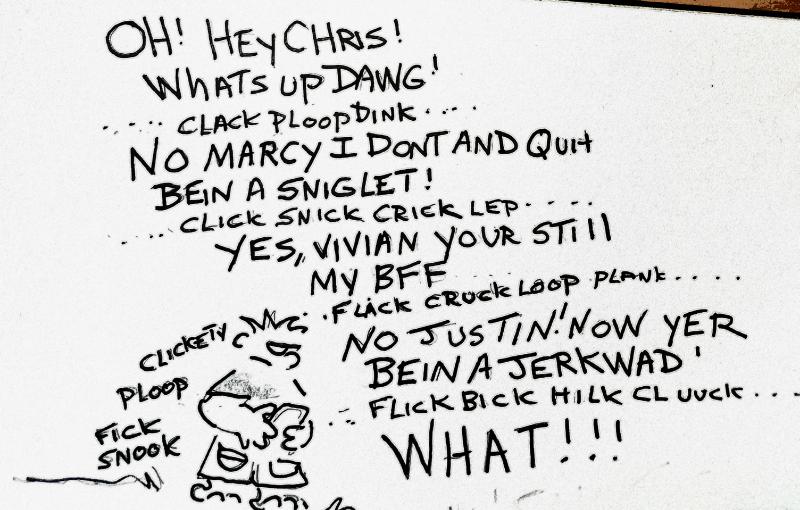 OH! HEY CHRIS!
WHATS UP DAWG!
..... CLACK PLOOP DINK .....
NO MARCY I DONT AND QUIT
BEIN A SNIGLET!
..... CLICK SNICK CRICK LEP .....
YES, VIVIAN YOUR STILL
MY BFF
..FLACK CRUCK LOOP PLANK....
NO JUSTIN! NOW YER
BEIN A JERKWAD!
... FLICK BICK HILK CLUUCK ...
WHAT!!!
CLICKETY
PLOOP
FICK
SNOOK